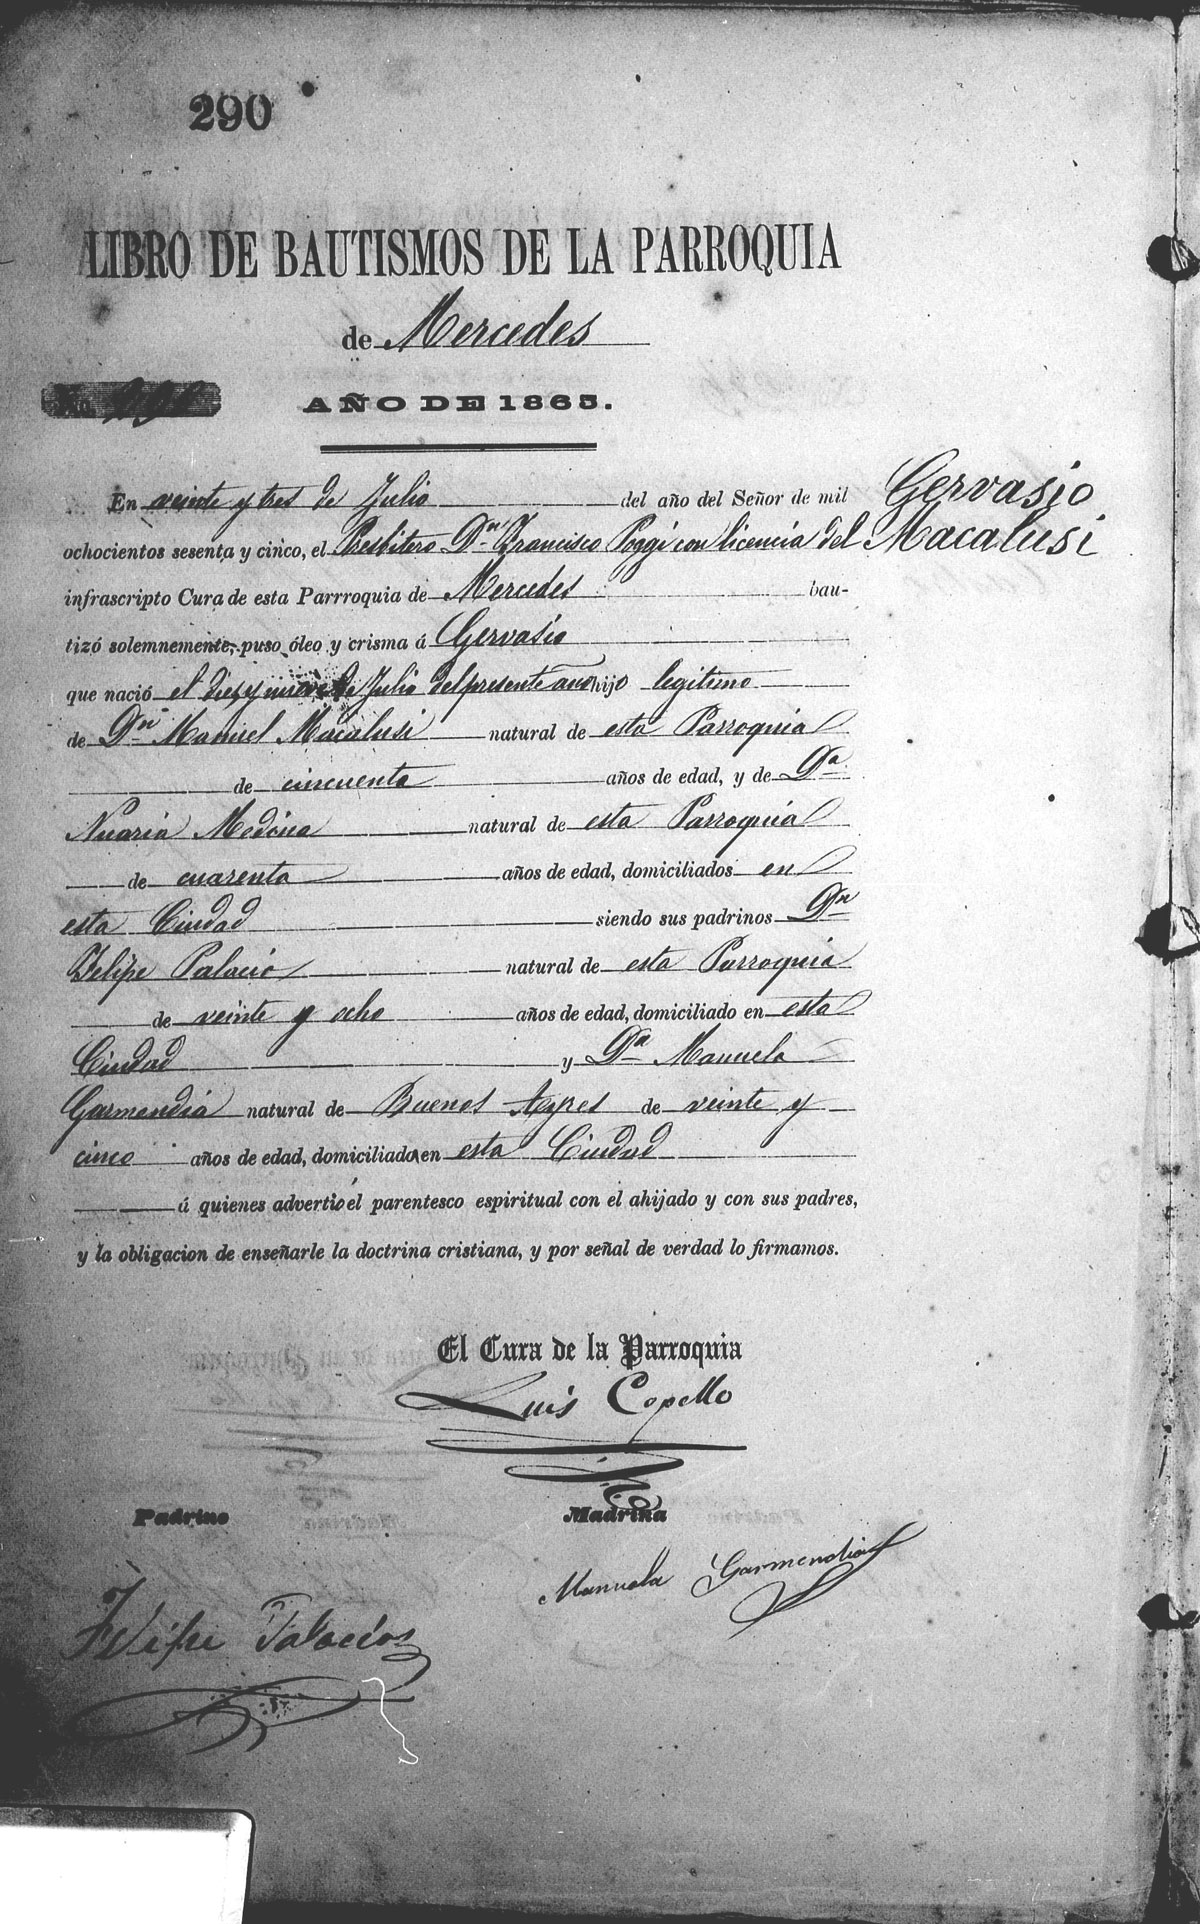 290
LIBRO DE BAUTISMOS DE LA PARROQUIA
de Mercedes
AÑO DE 1865.
Gervasio
Macalusi
En veinte y tres de Julio del año del Señor de mil
ochocientos sesenta y cinco, el Presbitero Dn Francisco Poggi con licencia del
infrascripto Cura de esta Parrroquia de Mercedes bau-
tizó solemnemente, puso óleo y crisma á Gervasio
que nació el diez y nueve de Julio del presente año hijo legitimo
de Dn Manuel Macalusi natural de esta Parroquia
de cincuenta años de edad, y de Da
Nuaria Medina natural de esta Parroquia
de cuarenta años de edad, domiciliados en
esta Ciudad siendo sus padrinos Dn
Felipe Palacio natural de esta Parroquia
de veinte y ocho años de edad, domiciliado en esta
Ciudad y Da Manuela
Garmendia natural de Buenos Ayres de veinte y
cinco años de edad, domiciliada en esta Ciudad
á quienes advertió el parentesco espiritual con el ahijado y con sus padres,
y la obligacion de enseñarle la doctrina cristiana, y por señal de verdad lo firmamos.
El Cura de la Parroquia
Luis Copello
Padrino Madrina
Manuela Garmendia
Felipe Palacios